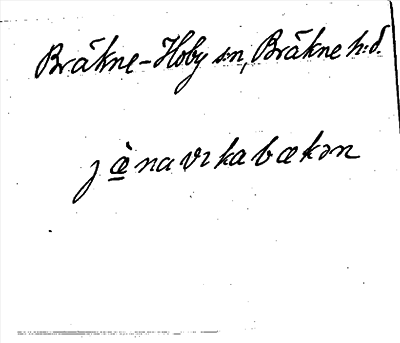 Bräkne-Hoby sn, Bräkne hd.
jæ̲̀navıkabækən